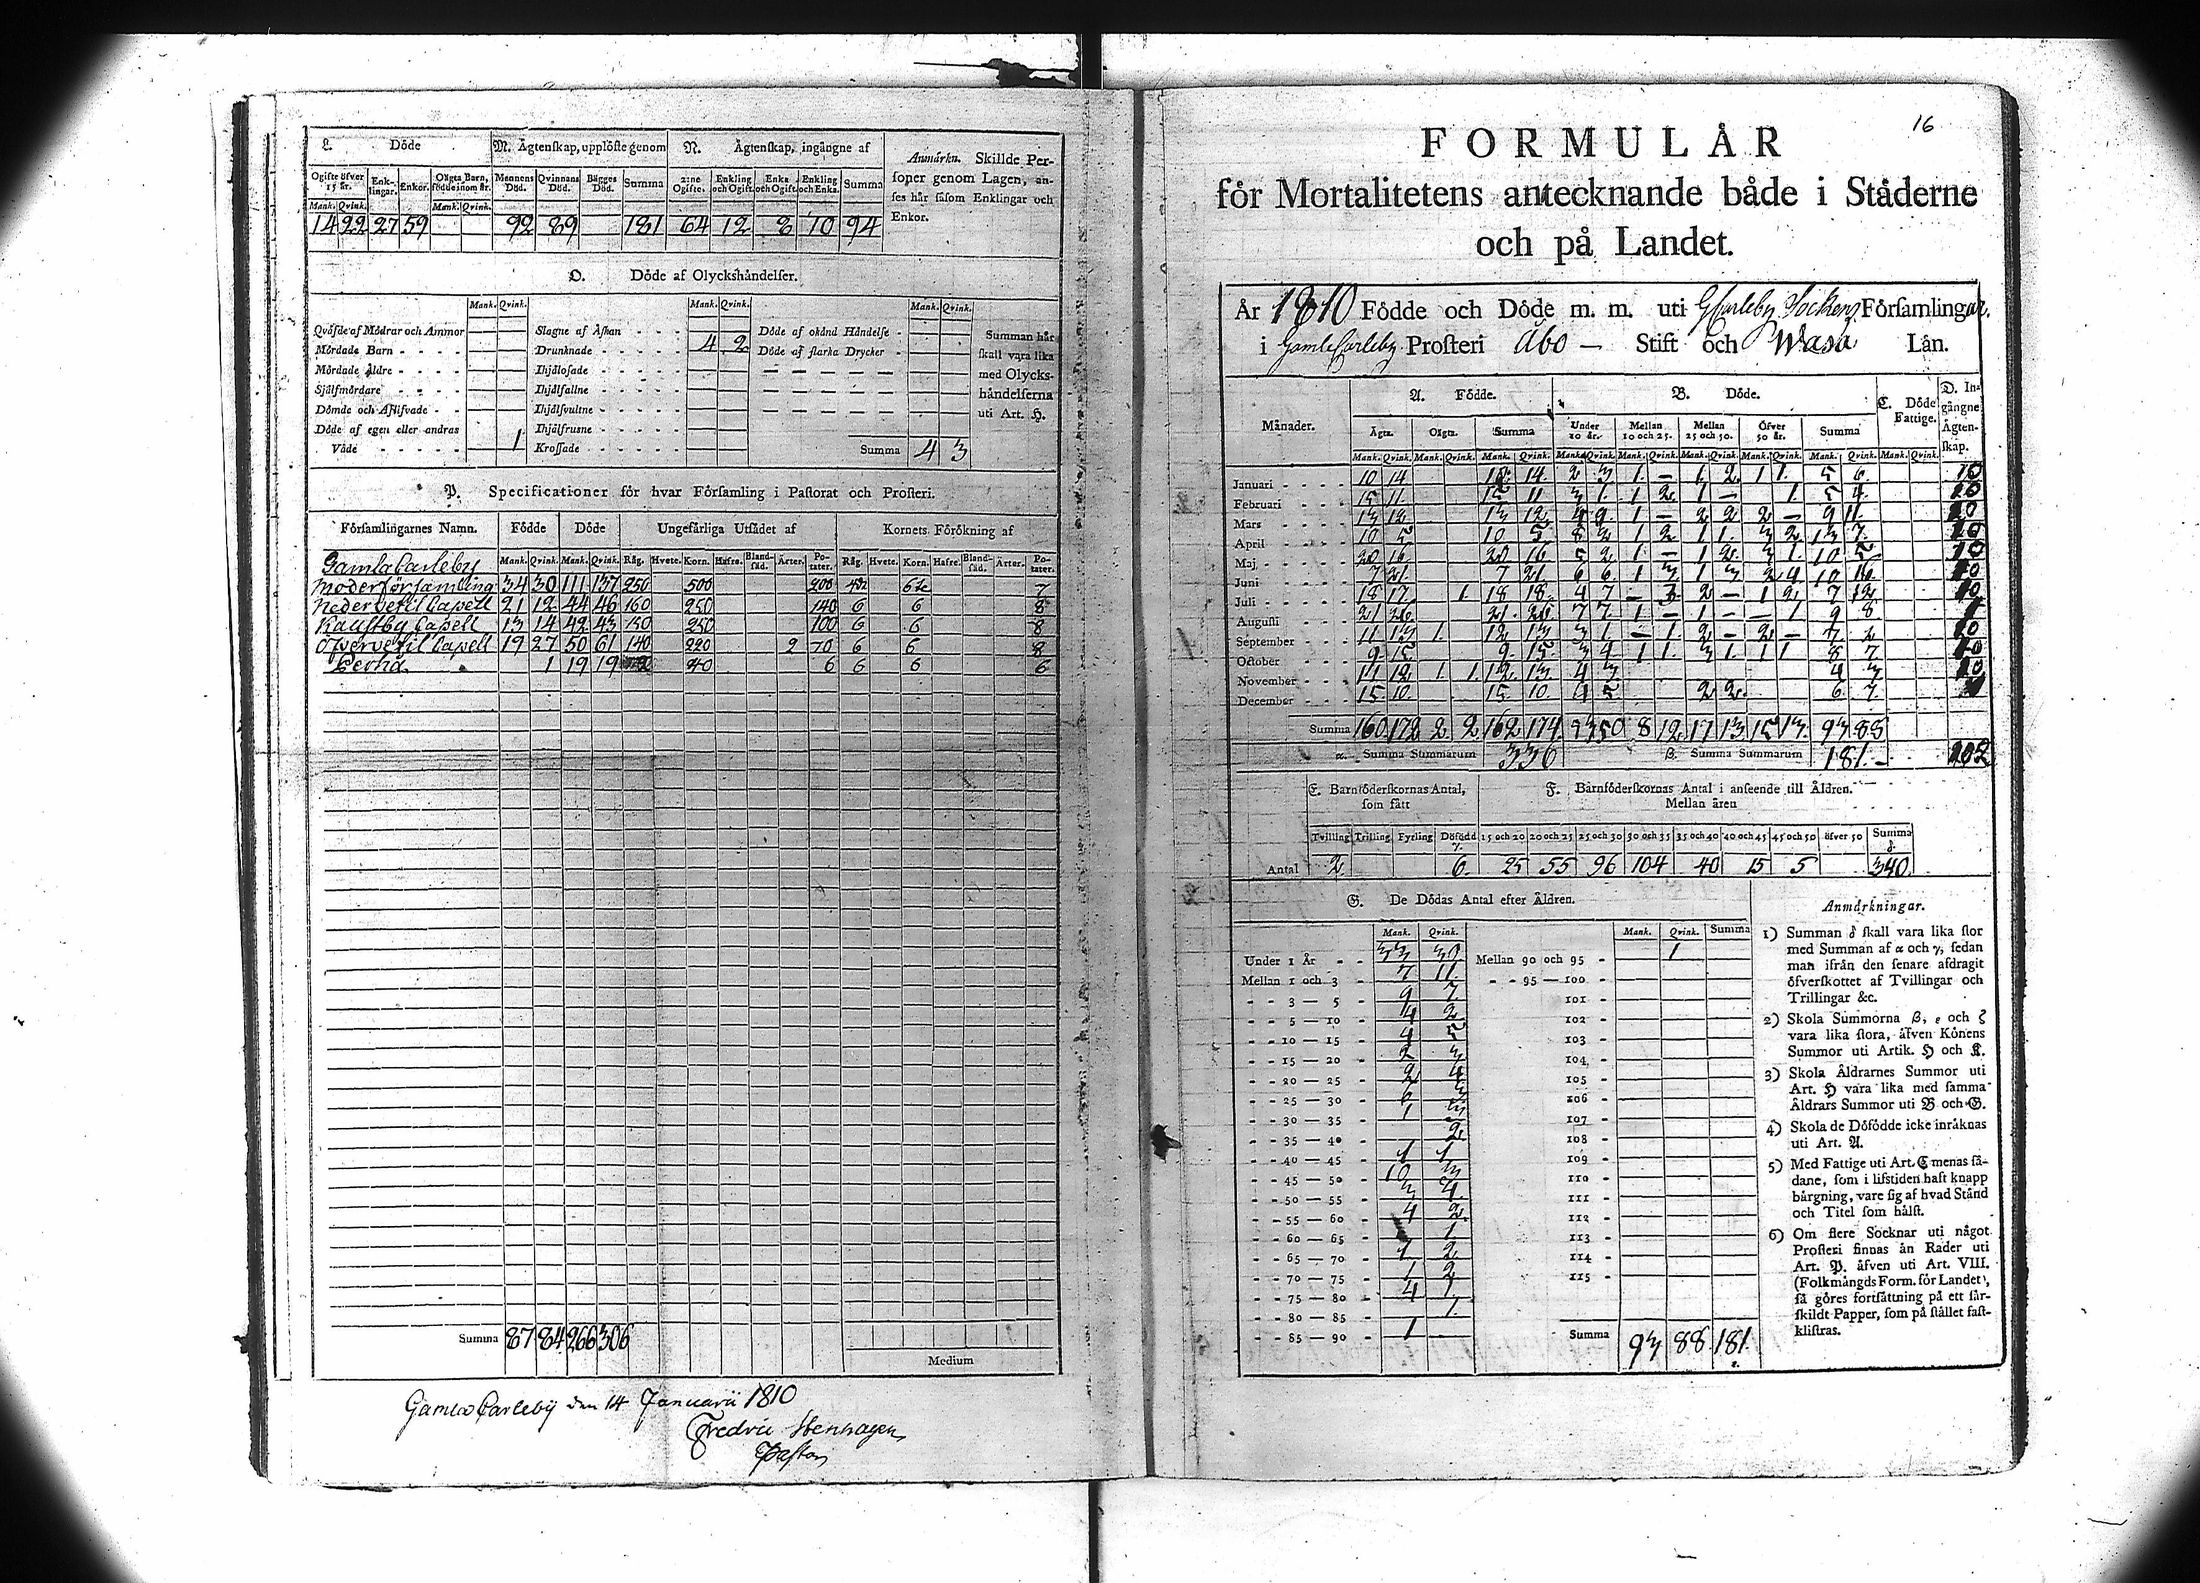 L. Döde M. Ägtenskap, upplöste genom N. Ägtenskap, ingångne af
Ogifte öfver 15 år. Enklingar. Enkor. Oägta Barn, födde inom år. Mennens Död. Qvinnans Död. Bägges Död. Summa 2:ne Ogifte. Enkling och Ogift. Enka och Ogift. Enkling och Enka. Summa
Mank. Qvink. Mank. Qvink.
14 22 27 59 92 89 181 64 12 8 10 94
Anmärkn. Skillde Personer genom Lagen, anses här såsom Enklingar och Enkor.
O. Döde af Olyckshändelser.
Mank. Qvink. Mank. Qvink. Mank. Qvink.
Qväfde af Mödrar och Ammor — — Slagne af Åskan - - - — — Döde af okänd Händelse - — —
Mördade Barn - - - - — — Drunknade - - - - - 4 2 Döde af starka Drycker - — —
Mördade Äldre - - - - — — Ihjälosade - - - - - — —
Själfmördare - - - - — — Ihjälfallne - - - - - — —
Dömde och Aflifvade - - — — Ihjälsvultne - - - - — —
Döde af egen eller andras Ihjälfrusne - - - - - — —
Våde - - - - - — 1 Krossade - - - - - — — Summa 4 3
Summan här
skall vara lika
med Olycks-
händelserna
uti Art. H.
P. Specificationer för hvar Församling i Pastorat och Prosteri.
Församlingarnes Namn. Födde Döde Ungefärliga Utsädet af Kornets Förökning af
Mank. Qvink. Mank. Qvink. Råg. Hvete. Korn. Hafre. Blandsäd. Ärter. Potater. Råg. Hvete. Korn. Hafre. Blandsäd. Ärter. Potater.
Gamla Carleby
Moderförsamling 34 30 111 137 250 500 200 7
Nedervetil Capell 21 12 44 46 160 250 140 6 6 8
Kaustby Capell 13 14 42 43 150 250 100 6 6 8
Öfvervetil Capell 19 27 50 61 140 220 2 70 6 6 8
Perho 1 19 19 40 6 6 6 6
Summa 87 84 266 306
Medium
Gamla Carleby den 14 Januarii 1810
Fredric Stenhagen
Pastor
16
FORMULÄR
för Mortalitetens antecknande både i Städerne
och på Landet.
År 1810 Födde och Döde m. m. uti GCarleby Sockens Församlingar.
i Gamle Carleby Prosteri Åbo — Stift och Wasa Län.
Månader. A. Födde. B. Döde. C. Döde Fattige. D. Ingångne Ägtenskap.
Ägta. Oägta. Summa Under 10 år. Mellan 10 och 25. Mellan 25 och 50. Öfver 50 år. Summa
Mank. Qvink. Mank. Qvink. Mank. Qvink. Mank. Qvink. Mank. Qvink. Mank. Qvink. Mank. Qvink. Mank. Qvink. Mank. Qvink.
Januari - - - - 10 14 14 2 3 1 — 1 2 1 1 5 6
Februari - - - 15 11 15 11 3 1 1 2 1 — 1 5 4
Mars - - - - 13 12 13 12 4 9 1 — 2 2 2 — 9 11
April - - - - 10 5 10 5 8 2 1 2 1 1 3 2 13 7
Maj - - - - 20 16 20 16 5 2 1 — 1 2 3 1 10 5
Juni - - - - 7 21 7 21 6 6 1 3 1 3 2 4 10 16
Juli - - - - 18 17 1 18 18 4 7 — 3 2 — 1 2 7 12
Augusti - - - 21 26 21 26 7 7 1 — 1 — — 1 9 8
September - - - 11 13 1 12 13 3 1 — 1 2 — 2 — 7 2
October - - - 9 15 9 15 3 4 1 1 3 1 1 1 8 7
November - - - 11 12 1 1 12 13 4 3 4 3
December - - - 15 10 15 10 4 5 2 2 6 7
Summa 160 172 2 2 162 174 50 8 12 17 13 15 13 93 88
α. Summa Summarum 336 β. Summa Summarum 181.— 102
E. Barnföderskornas Antal, som fått F. Barnföderskornas Antal i anseende till Åldren.
Mellan åren
Tvilling Trilling Fyrling Dödfödd γ. 15 och 20 20 och 25 25 och 30 30 och 35 35 och 40 40 och 45 45 och 50 öfver 50 Summa δ.
Antal 2 6 25 55 96 104 40 15 5 340
G. De Dödas Antal efter Åldren.
Mank. Qvink. Mank. Qvink. Summa
Under 1 År - - 33 30 Mellan 90 och 95 - 1
Mellan 1 och 3 - 7 11 - - 95 — 100 -
- - 3 — 5 - 9 7 101 -
- - 5 — 10 - 4 2 102 -
- - 10 — 15 - 4 5 103 -
- - 15 — 20 - 2 3 104 -
- - 20 — 25 - 2 4 105 -
- - 25 — 30 - 6 3 106 -
- - 30 — 35 - 1 3 107 -
- - 35 — 40 - 2 108 -
- - 40 — 45 - 1 1 109 -
- - 45 — 50 - 10 3 110 -
- - 50 — 55 - 3 4 111 -
- - 55 — 60 - 4 2 112 -
- - 60 — 65 - 1 113 -
- - 65 — 70 - 1 2 114 -
- - 70 — 75 - 1 2 115 -
- - 75 — 80 - 4 1
- - 80 — 85 - 1
- - 85 — 90 - 1 Summa 93 88 181
Anmärkningar.
1) Summan δ skall vara lika stor
med Summan af α och γ, sedan
man ifrån den senare afdragit
öfverskottet af Tvillingar och
Trillingar &c.
2) Skola Summorna β, ε och ζ
vara lika stora, äfven Könens
Summor uti Artik. H och K.
3) Skola Åldrarnes Summor uti
Art. H vara lika med samma
Åldrars Summor uti B och G.
4) Skola de Döfödde icke inräknas
uti Art. A.
5) Med Fattige uti Art. C menas sådane,
som i lifstiden haft knapp
bärgning, vare sig af hvad Stånd
och Titel som hälst.
6) Om flere Socknar uti något
Prosteri finnas än Rader uti
Art. P. äfven uti Art. VIII.
(Folkmängds Form. för Landet),
så göres fortsättning på ett särskildt
Papper, som på stället fastklistras.